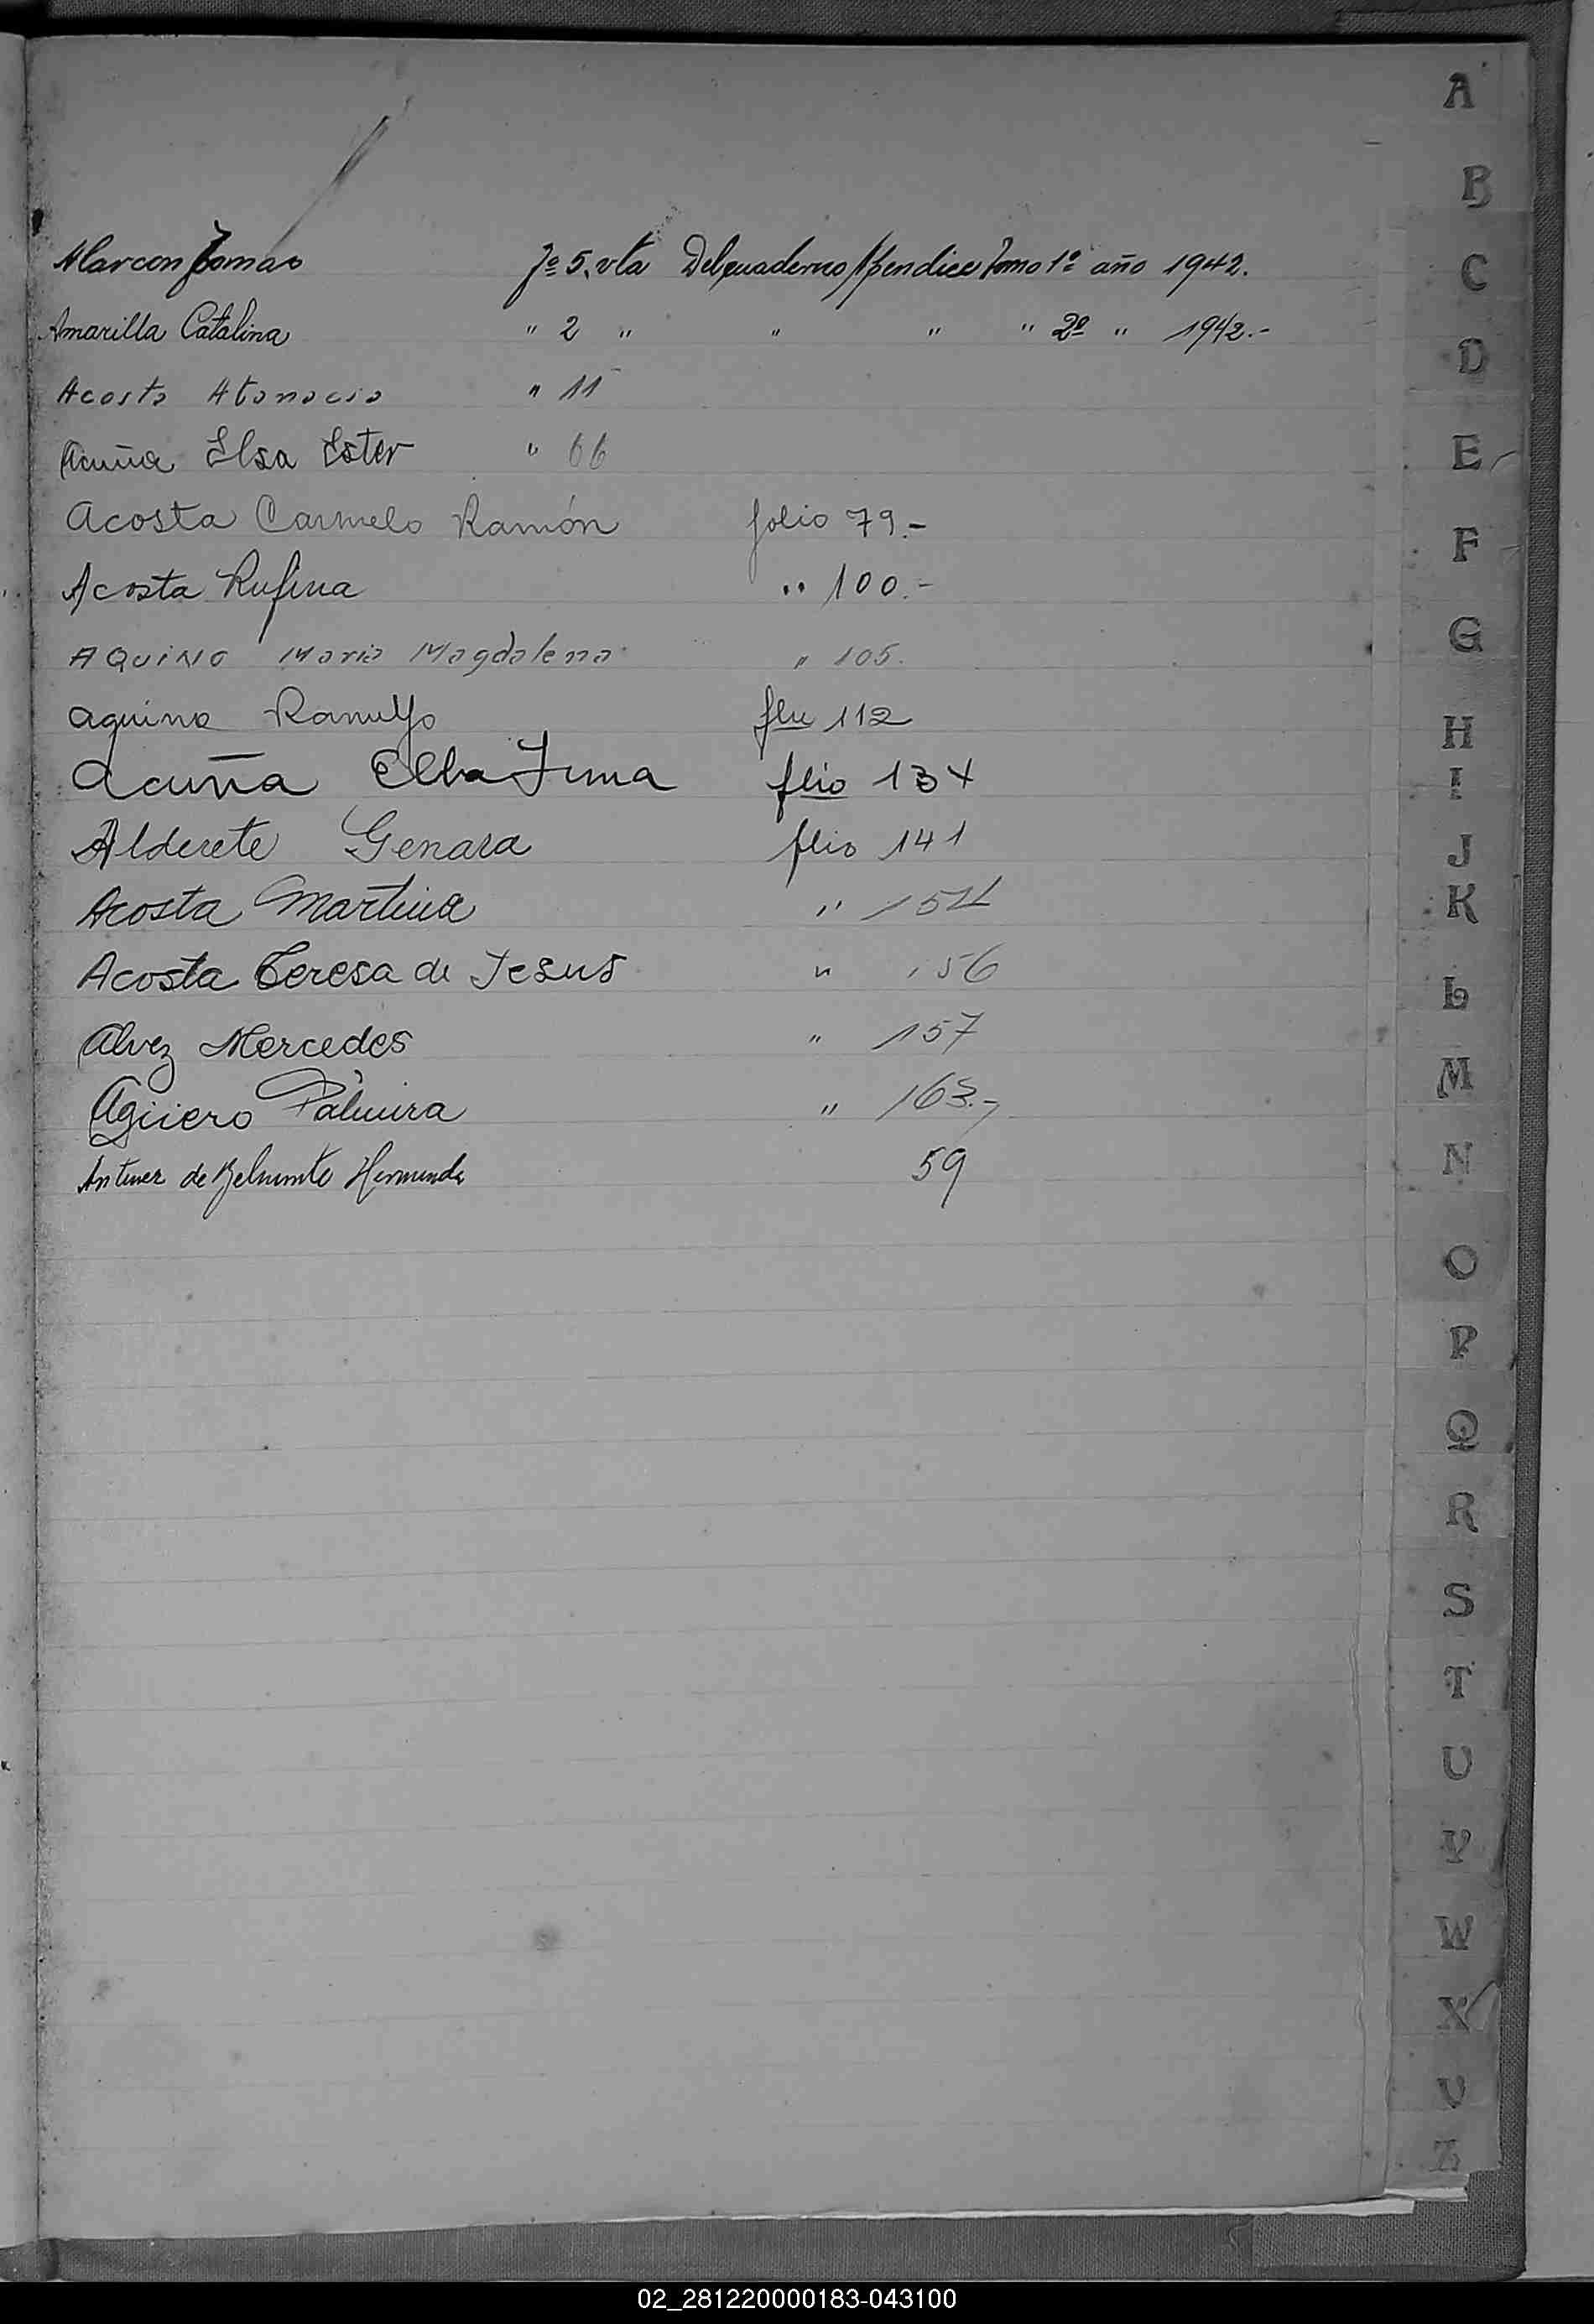 Alarcon Tomas Fº 5. vta Del cuaderno Apendice Tomo 1º año 1942.
Amarilla Catalina " 2 " " " " 2º " 1942.-
Acosta Atanacio " 11
Acuña Elsa Ester " 66
Acosta Carmelo Ramón folio 79.-
Acosta Rufina " 100.-
AQUINO Maria Magdalena " 105.
Aquino Ranulfo 112
Acuña Elba flio 134
Alderete Genara flio 141
Acosta Martina "
Acosta Teresa de Jesus " 156
Alvez Mercedes " 157
Agüero Palmira " 163.-
de 59
A
B
C
D
E
F
G
H
I
J
K
L
M
N
O
P
Q
R
S
T
U
V
W
X
Z
02_281220000183-043100